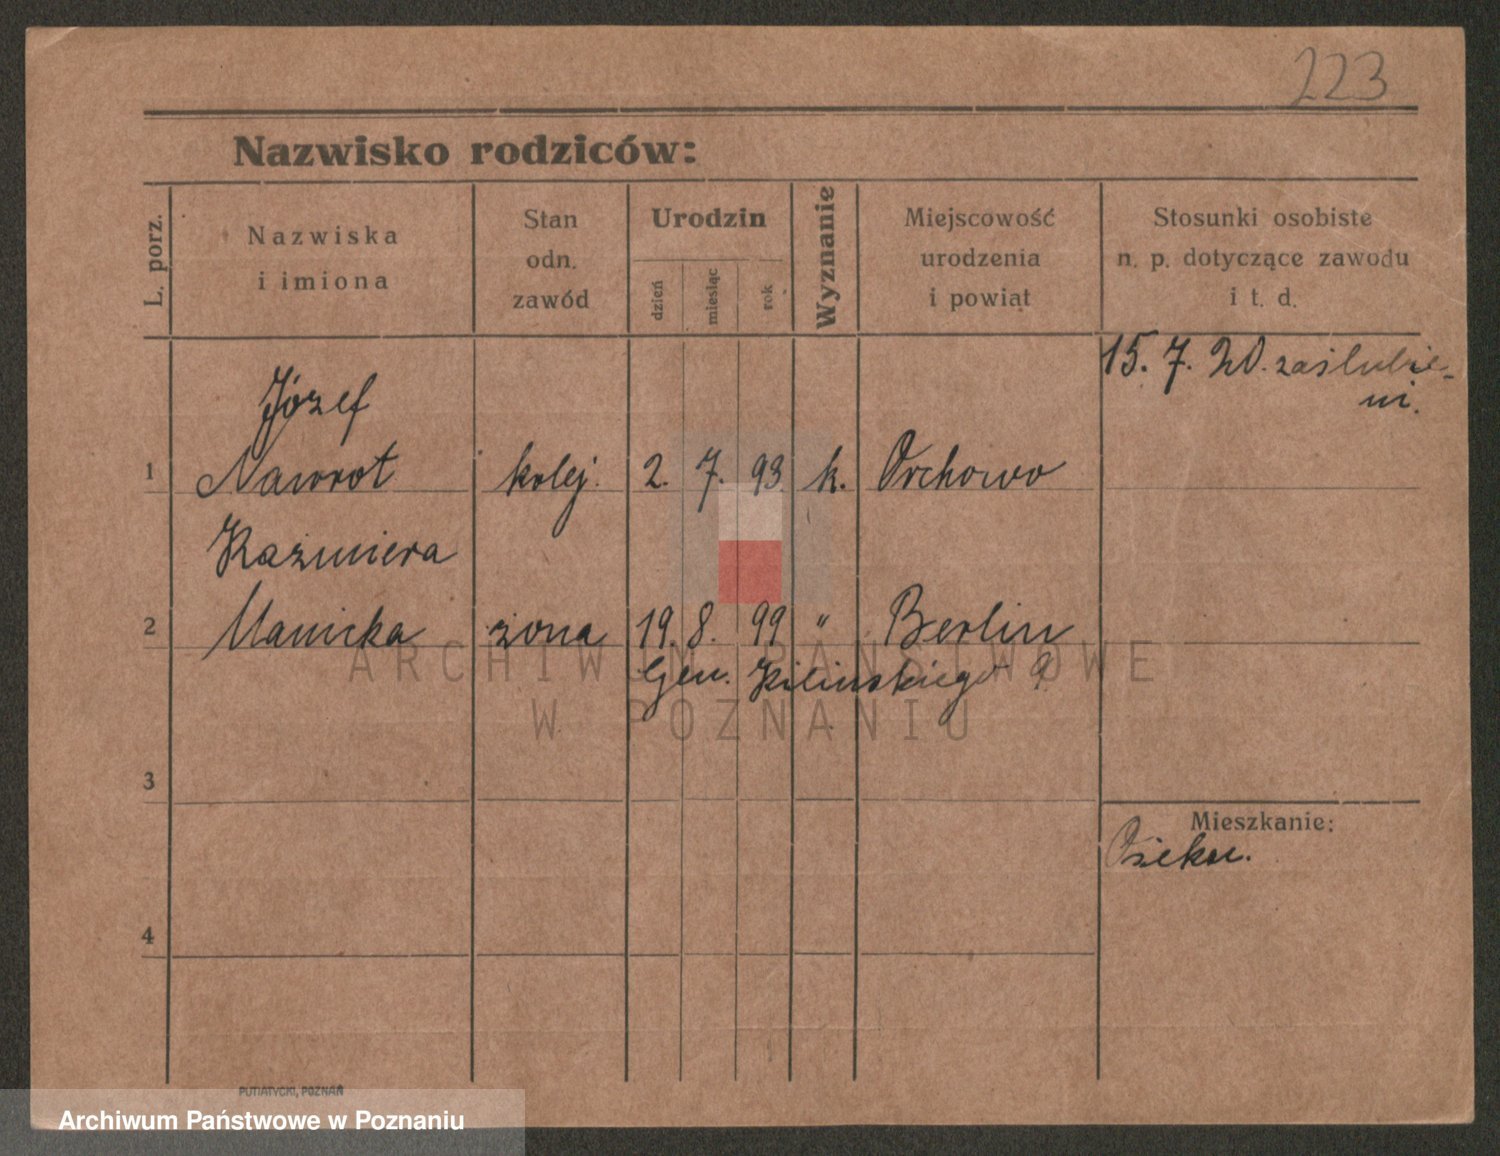 223
Nazwisko rodziców:
L. porz.
Nazwiska
i imiona
Stan
odn.
zawód
Urodzin
dzień
miesiąc
rok
Wyznanie
Miejscowość
urodzenia
i powiat
Stosunki osobiste
n. p. dotyczące zawodu
i t. d.
15. 7. 20. zaślubie-
ni.
Józef
1 Nawrot kolej. 2. 7. 93 k. Orchowo
Kazimiera
2 Manicka żona 19. 8. 99 " Berlin
Gen. Kilinskiego
ARCHIWUM PAŃSTWOWE
W POZNANIU
3
Mieszkanie:
4
PUTIATYCKI, POZNAŃ
Archiwum Państwowe w Poznaniu